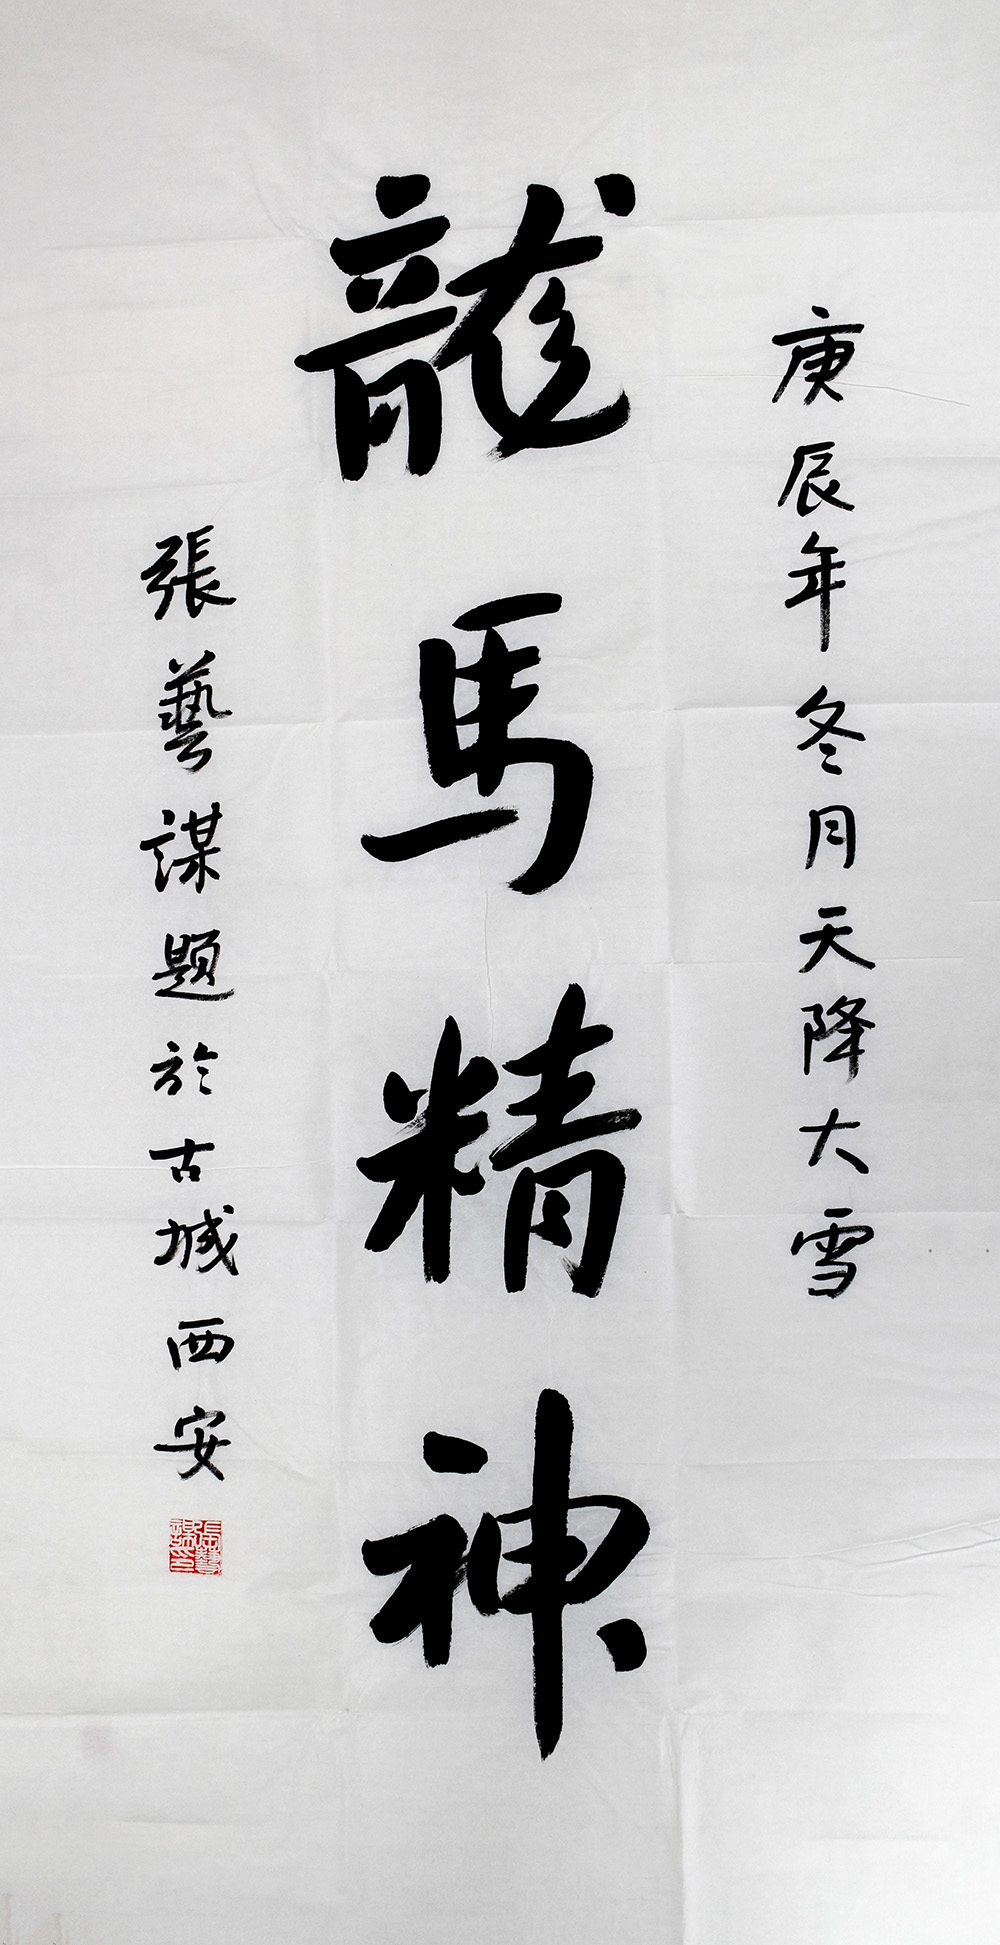 庚辰年冬月天降大雪
龍馬精神
張藝謀題於古城西安
張藝謀印